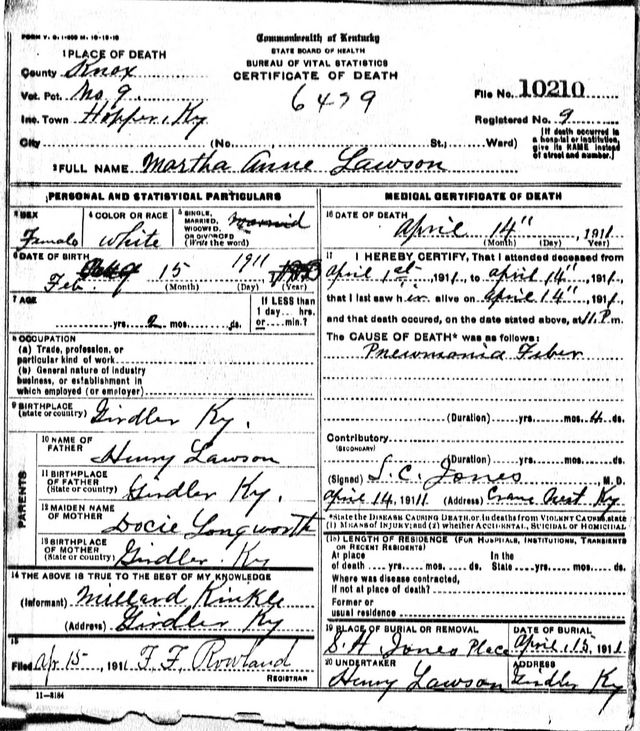 FORM V. S. 1-500 M. 10-19-10
Commonwealth of Kentucky
STATE BOARD OF HEALTH
BUREAU OF VITAL STATISTICS
CERTIFICATE OF DEATH
6479
1 PLACE OF DEATH
County Knox
Vot. Pct. No 9.
Inc. Town Hopper, Ky
City (No. St.; Ward)
File No. 10210
Registered No. 9
[If death occurred in a hospital or institution, give its NAME instead of street and number.]
2 FULL NAME Martha Anne Lawson
PERSONAL AND STATISTICAL PARTICULARS
3 SEX Female
4 COLOR OR RACE White
5 SINGLE, MARRIED, WIDOWED, OR DIVORCED (Write the word) Married
6 DATE OF BIRTH
Feb 15 1911
(Month) (Day) (Year)
7 AGE
yrs. 2 mos. ds.
If LESS than 1 day hrs. or min.?
8 OCCUPATION
(a) Trade, profession, or particular kind of work
(b) General nature of industry business, or establishment in which employed (or employer)
9 BIRTHPLACE (state or country) Girdler Ky.
PARENTS
10 NAME OF FATHER Henry Lawson
11 BIRTHPLACE OF FATHER (State or country) Girdler Ky.
12 MAIDEN NAME OF MOTHER Docie Longworth
13 BIRTHPLACE OF MOTHER (State or country) Girdler Ky
14 THE ABOVE IS TRUE TO THE BEST OF MY KNOWLEDGE
(Informant) Millard Kinkle
(Address) Girdler Ky
15
Filed Apr 15, 1911 F. F. Rowland
REGISTRAR
11-3184
MEDICAL CERTIFICATE OF DEATH
16 DATE OF DEATH
April 14", 1911
(Month) (Day) (Year)
17 I HEREBY CERTIFY, That I attended deceased from
April 1st, 1911, to April 14", 1911,
that I last saw her alive on April 14", 1911
and that death occured, on the date stated above, at 11 P.m.
The CAUSE OF DEATH* was as follows:
Pneumonia Fiber
(Duration) yrs. mos. 4 ds.
Contributory
(SECONDARY)
(Duration) yrs. mos. ds.
(Signed) S. C. Jones M.D.
April 14, 1911 (Address) Crane Ky
*State the DISEASE CAUSING DEATH, or, in deaths from VIOLENT CAUSES, state
(1) MEANS OF INJURY; and (2) whether ACCIDENTAL, SUICIDAL OR HOMICIDAL
18 LENGTH OF RESIDENCE (FOR HOSPITALS, INSTITUTIONS, TRANSIENTS OR RECENT RESIDENTS)
At place of death yrs. mos. ds. In the State yrs. mos. ds.
Where was disease contracted,
if not at place of death?
Former or
usual residence
19 PLACE OF BURIAL OR REMOVAL
S. H. Jones Place
DATE OF BURIAL
April 15, 1911
20 UNDERTAKER
Henry Lawson
ADDRESS
Girdler Ky